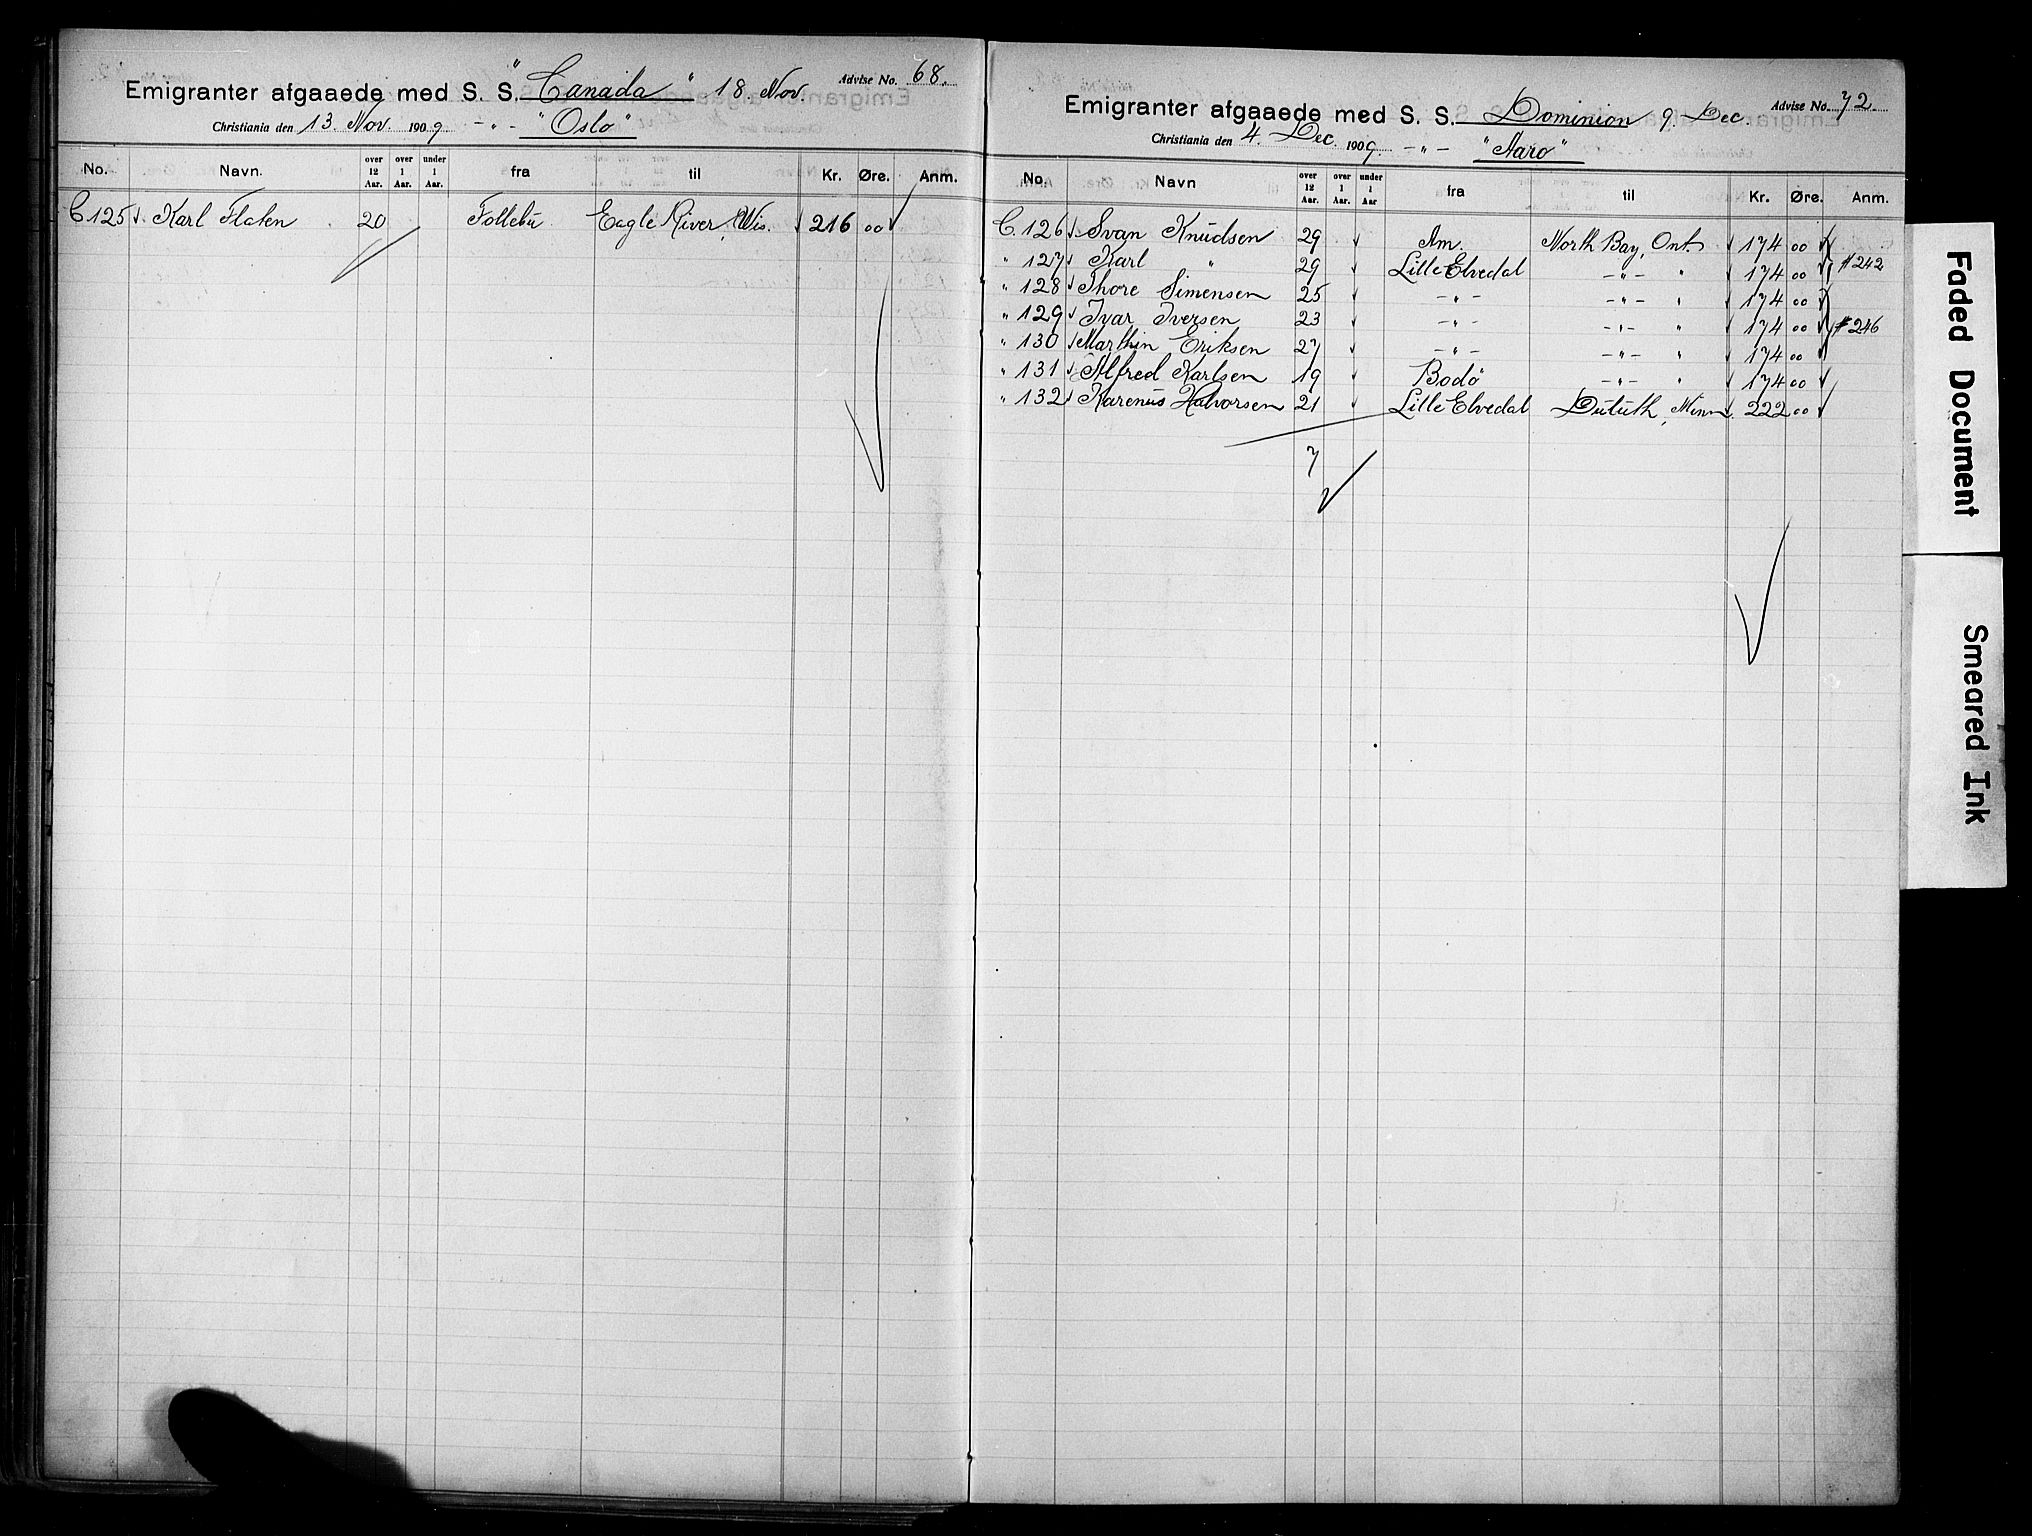 Advise No. 68.
Emigranter afgaaede med S. S. "Canada" 18. Nov.
Christiania den 13. Nov 1909. -"- "Oslo"
No. Navn. over 12 Aar. over 1 Aar. under 1 Aar. fra til Kr. Øre. Anm.
C 125 Karl Flaten 20 Follebu Eagle River, Wis. 216 00
Advise No. 72.
Emigranter afgaaede med S. S. Dominion 9. Dec.
Christiania den 4. Dec. 1909. -"- "Aaro"
No. Navn over 12 Aar. over 1 Aar. under 1 Aar fra til Kr. Øre. Anm.
C. 126 Svan Knudsen 29 Am. North Bay, Ont. 174 00
" 127 Karl " 29 Lille Elvedal -"- " 174 00 # 242
" 128 Thore Simensen 25 -"- -"- " 174 00
" 129 Ivar Iversen 23 -"- -"- " 174 00 # 246
" 130 Marthin Eriksen 27 -"- -"- " 174 00
" 131 Alfred Karlsen 19 Bodø -"- " 174 00
" 132 Karenus Halvorsen 21 Lille Elvedal Duluth, Minn. 222 00
7
Faded Document
Smeared Ink